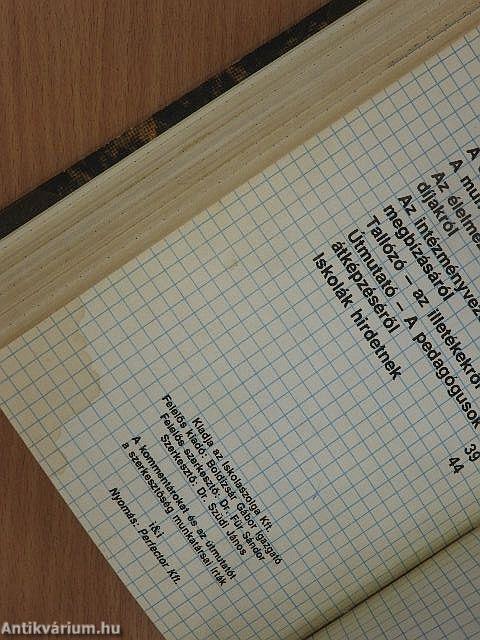 A
A mun
Az élelmez
díjakról
Az intézményvez
megbízásáról
Tallózó – az illetékekről
Útmutató – A pedagógusok
átképzéséről
39
Iskolák hirdetnek
44
Kiadja az Iskolaszolga Kft.
Felelős kiadó: Boldizsár Gábor igazgató
Felelős szerkesztő: Dr. Für Sándor
Szerkesztő: Dr. Szüdi János
A kommentárokat és az útmutatót
a szerkesztőség munkatársai írták
i&i
Nyomás: Perfector Kft.
Antikvárium.hu